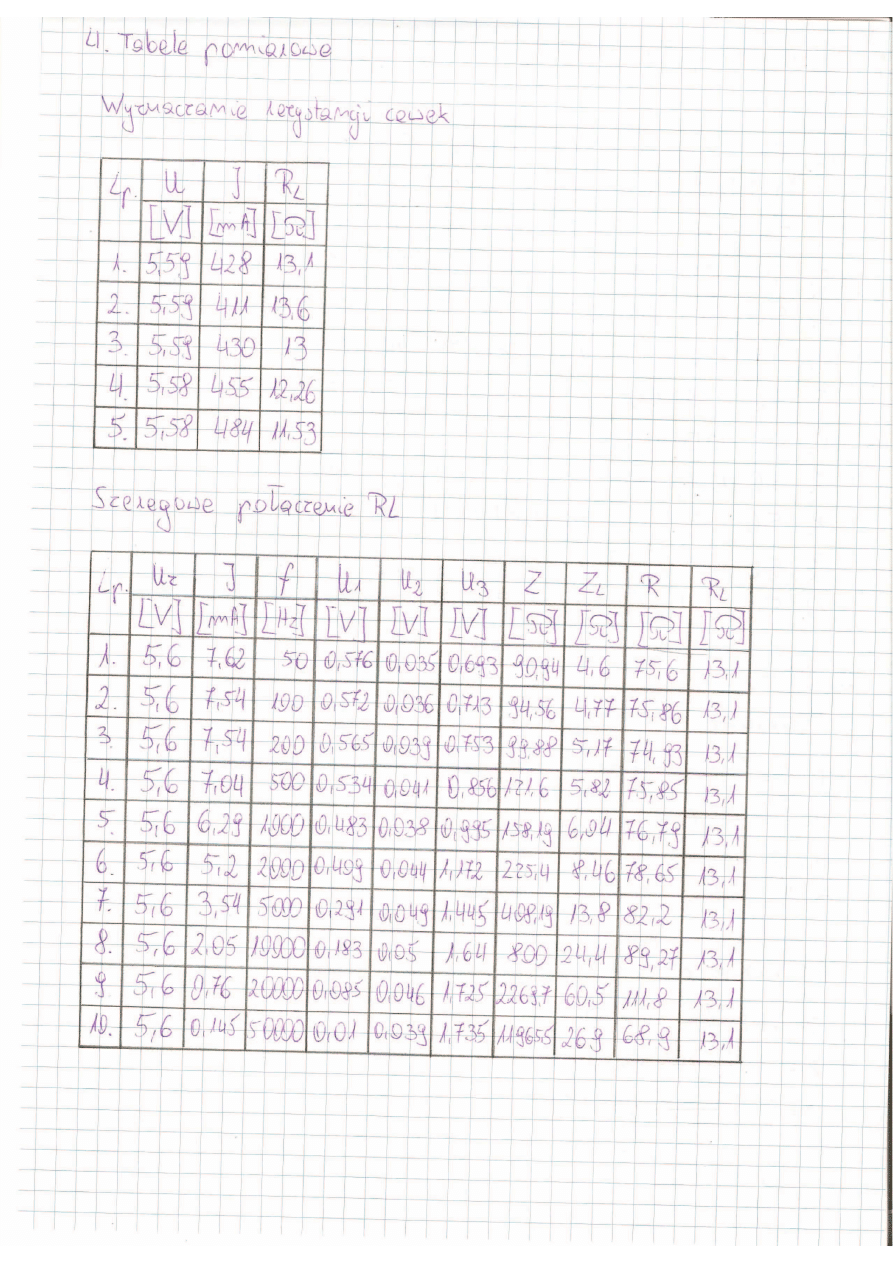 4. Tabele pomiarowe
Wyznaczanie rezystancji cewek
Lp. U J RL
[V] [mA] [Ω]
1. 5,59 428 13,1
2. 5,59 411 13,6
3. 5,59 430 13
4. 5,58 455 12,26
5. 5,58 484 11,53
Szeregowe połączenie RL
Lp. Uz J f U1 U2 U3 Z ZL R RL
[V] [mA] [Hz] [V] [V] [V] [Ω] [Ω] [Ω] [Ω]
1. 5,6 7,62 50 0,576 0,035 0,693 90,94 4,6 75,6 13,1
2. 5,6 7,54 100 0,572 0,036 0,713 94,56 4,77 75,86 13,1
3. 5,6 7,54 200 0,565 0,039 0,753 99,88 5,17 74,93 13,1
4. 5,6 7,04 500 0,534 0,041 0,856 121,6 5,82 75,85 13,1
5. 5,6 6,29 1000 0,483 0,038 0,995 158,19 6,04 76,79 13,1
6. 5,6 5,2 2000 0,409 0,044 1,172 225,4 8,46 78,65 13,1
7. 5,6 3,54 5000 0,291 0,049 1,445 408,19 13,8 82,2 13,1
8. 5,6 2,05 10000 0,183 0,05 1,64 800 24,4 89,27 13,1
9 5,6 0,76 20000 0,085 0,046 1,725 2269,7 60,5 111,8 13,1
10. 5,6 0,145 50000 0,01 0,039 1,735 11965,5 269 68,9 13,1